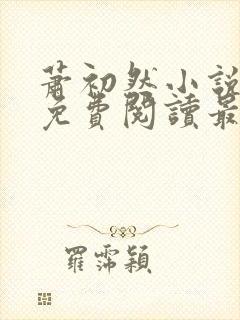 蕭初然小說
免費閱讀最
羅霈穎